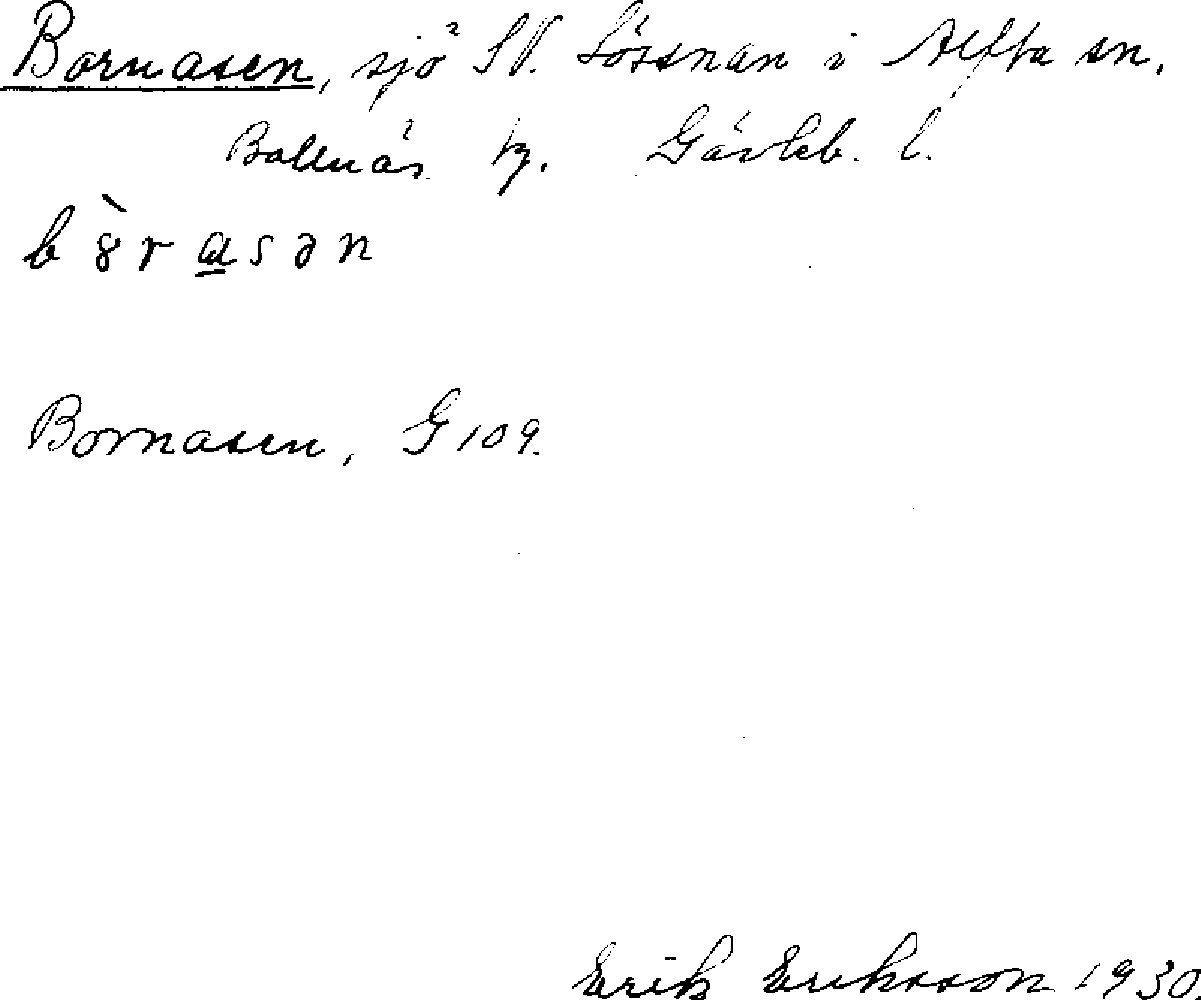 Bornasen, sjö SV. Lössnan i Alfta sn.
Bollnäs tg. Gävleb. l.
b ȣ̀ r a s ə n
Bornasen, G 109.
Erik Eriksson 1930.